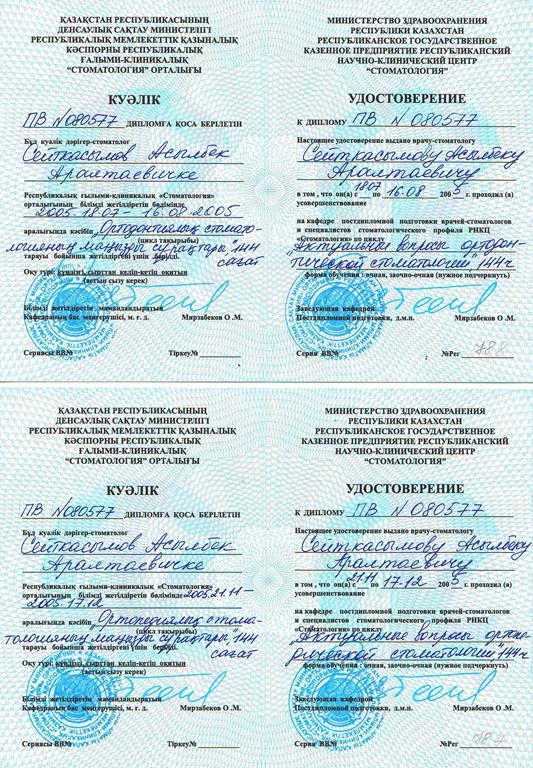 ҚАЗАҚСТАН РЕСПУБЛИКАСЫНЫҢ
ДЕНСАУЛЫҚ САҚТАУ МИНИСТРЛІГІ
РЕСПУБЛИКАЛЫҚ МЕМЛЕКЕТТІК ҚАЗЫНАЛЫҚ
КӘСІПОРНЫ РЕСПУБЛИКАЛЫҚ
ҒАЛЫМИ-КЛИНИКАЛЫҚ
“СТОМАТОЛОГИЯ” ОРТАЛЫҒЫ
КУӘЛІК
ПВ №080577 ДИПЛОМҒА ҚОСА БЕРІЛЕТІН
Бұл куәлік дәрігер-стоматолог
Сейткасымов Асылбек
Аралтаевичке
Республикалық ғылыми-клиникалық «Стоматология»
орталығының білімді жетілдіретін бөлімінде
2005 18.07 – 16.08.2005
аралығында кәсібін „Ортодонтиялық стомато-
логияның маңызды сұрақтары" 144
(цикл тақырыбы) сағат
тарауы бойынша жетілдіргені үшін берілді.
Оқу түрі: күндізгі, сырттан келіп-кетіп оқитын
(астын сызу керек)
Білімді жетілдіретін мамандандыратын
Кафедраның бас меңгерушісі, м. ғ. д. Мирзабеков О .М.
Сериясы ВВ№ Тіркеу№
МИНИСТЕРСТВО ЗДРАВООХРАНЕНИЯ
РЕСПУБЛИКИ КАЗАХСТАН
РЕСПУБЛИКАНСКОЕ ГОСУДАРСТВЕННОЕ
КАЗЕННОЕ ПРЕДПРИЯТИЕ РЕСПУБЛИКАНСКИЙ
НАУЧНО-КЛИНИЧЕСКИЙ ЦЕНТР
“СТОМАТОЛОГИЯ”
УДОСТОВЕРЕНИЕ
К ДИПЛОМУ ПВ № 080577
Настоящее удостоверение выдано врачу-стоматологу
Сейткасымову Асылбеку
Аралтаевичу
в том , что он(а) с 18.07 по 16.08 2005 г. проходил (а)
усовершенствование
на кафедре постдипломной подготовки врачей-стоматологов
и специалистов стоматологического профиля РНКЦ
«Стоматология» по циклу
„Актуальные вопросы ортодон-
тической стоматологии" 144 ч
форма обучения : очная, заочно-очная (нужное подчеркнуть)
Заведующая кафедрой
Постдипломной подготовки, д.м.н. Мирзабеков О .М.
Серия ВВ№ №Рег
ҚАЗАҚСТАН РЕСПУБЛИКАСЫНЫҢ
ДЕНСАУЛЫҚ САҚТАУ МИНИСТРЛІГІ
РЕСПУБЛИКАЛЫҚ МЕМЛЕКЕТТІК ҚАЗЫНАЛЫҚ
КӘСІПОРНЫ РЕСПУБЛИКАЛЫҚ
ҒАЛЫМИ-КЛИНИКАЛЫҚ
“СТОМАТОЛОГИЯ” ОРТАЛЫҒЫ
КУӘЛІК
ПВ №080577 ДИПЛОМҒА ҚОСА БЕРІЛЕТІН
Бұл куәлік дәрігер-стоматолог
Сейткасымов Асылбек
Аралтаевичке
Республикалық ғылыми-клиникалық «Стоматология»
орталығының білімді жетілдіретін бөлімінде 2005 21.11 –
2005 17.12
аралығында кәсібін „Ортопедиялық стома-
тологияның маңызды сұрақтары" 144
(цикл тақырыбы) сағат
тарауы бойынша жетілдіргені үшін берілді.
Оқу түрі: күндізгі, сырттан келіп-кетіп оқитын
(астын сызу керек)
Білімді жетілдіретін мамандандыратын
Кафедраның бас меңгерушісі, м. ғ. д. Мирзабеков О .М.
Сериясы ВВ№ Тіркеу№
МИНИСТЕРСТВО ЗДРАВООХРАНЕНИЯ
РЕСПУБЛИКИ КАЗАХСТАН
РЕСПУБЛИКАНСКОЕ ГОСУДАРСТВЕННОЕ
КАЗЕННОЕ ПРЕДПРИЯТИЕ РЕСПУБЛИКАНСКИЙ
НАУЧНО-КЛИНИЧЕСКИЙ ЦЕНТР
“СТОМАТОЛОГИЯ”
УДОСТОВЕРЕНИЕ
К ДИПЛОМУ ПВ № 080577
Настоящее удостоверение выдано врачу-стоматологу
Сейткасымову Асылбеку
Аралтаевичу
в том , что он(а) с 21.11 по 17.12 2005 г. проходил (а)
усовершенствование
на кафедре постдипломной подготовки врачей-стоматологов
и специалистов стоматологического профиля РНКЦ
«Стоматология» по циклу
„Актуальные вопросы ортопе-
дической стоматологии", 144 ч
форма обучения : очная, заочно-очная (нужное подчеркнуть)
Заведующая кафедрой
Постдипломной подготовки, д.м.н. Мирзабеков О .М.
Серия ВВ№ №Рег